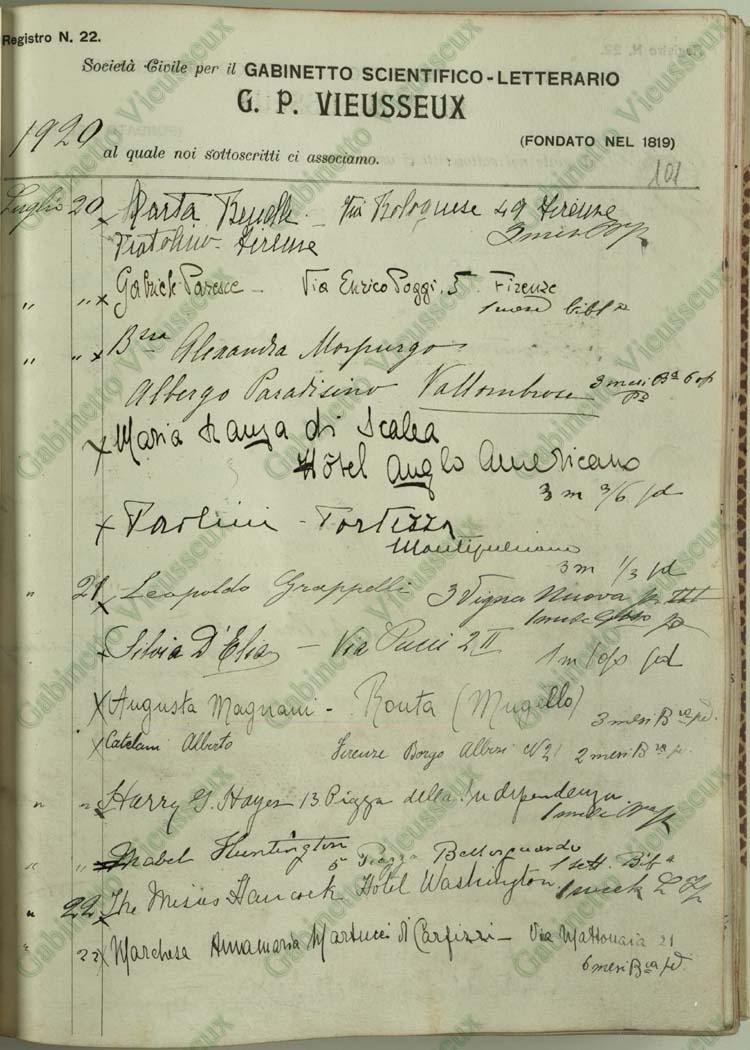 Registro N. 22.
Società Civile per il GABINETTO SCIENTIFICO-LETTERARIO
G. P. VIEUSSEUX
(FONDATO NEL 1819)
1920
al quale noi sottoscritti ci associamo.
101
Luglio 20 x Marta Benelli - Via Bolognese 49 Firenze
Pratolino - Firenze
3 mesi
" " x Gabriele Paresce - Via Enrico Poggi. 5 - Firenze
1 mese bibl
" " x Bssa Alexandra Morpurgo
Albergo Paradisino Vallombrosa 3 mesi Ba 6 op
x Maria Lanza di Scalea
Hôtel Anglo Americano
3 m 3/6 pd
x Paolini - Fortezza
Montepulciano
3 m 1/3 pd
" 21 x Leopoldo Grappelli 3 Vigna Nuova
x Silvia D'Elia - Via Pucci 2 II 1 m 6 op pd
x Augusta Magnani - Ronta (Mugello)
3 mesi Bca pd.
x Catelani Alberto Firenze Borgo Albizi N 21 2 mesi Bca p.
" " Harry G. Hayes 13 Piazza della Indipendenza
" " Mabel Huntington
5 Piazza Bellosguardo
1 sett. Bib a
" 22 The Misses Hancock Hotel Washington 1 week
" 22 x Marchesa Annamaria Martucci di Carfizzi - Via Mattonaia 21
6 mesi Bca pd.
Gabinetto Vieusseux